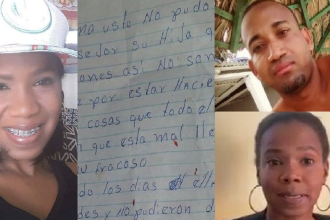 ma usto No pudo
sejar su Hija q
ones asi No san
por estar Hacie
cosas que todo el
n que esta mal lle
u fracaso
do los dias elle
des y no pudieron d